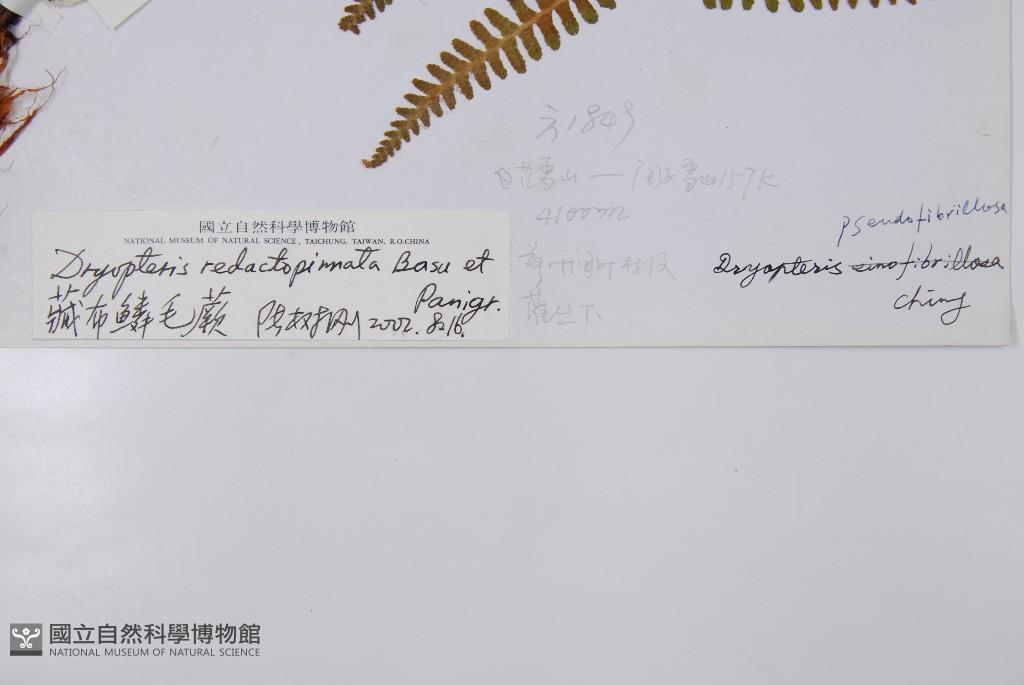 方1849
4100m
國立自然科學博物館
NATIONAL MUSEUM OF NATURAL SCIENCE, TAICHUNG, TAIWAN, R.O.CHINA
Dryopteris redactopinnata Basu et
Panigr.
藏布鱗毛蕨 2002. 8.16.
pseudofibrillosa
Dryopteris sinofibrillosa
Ching
國立自然科學博物館
NATIONAL MUSEUM OF NATURAL SCIENCE